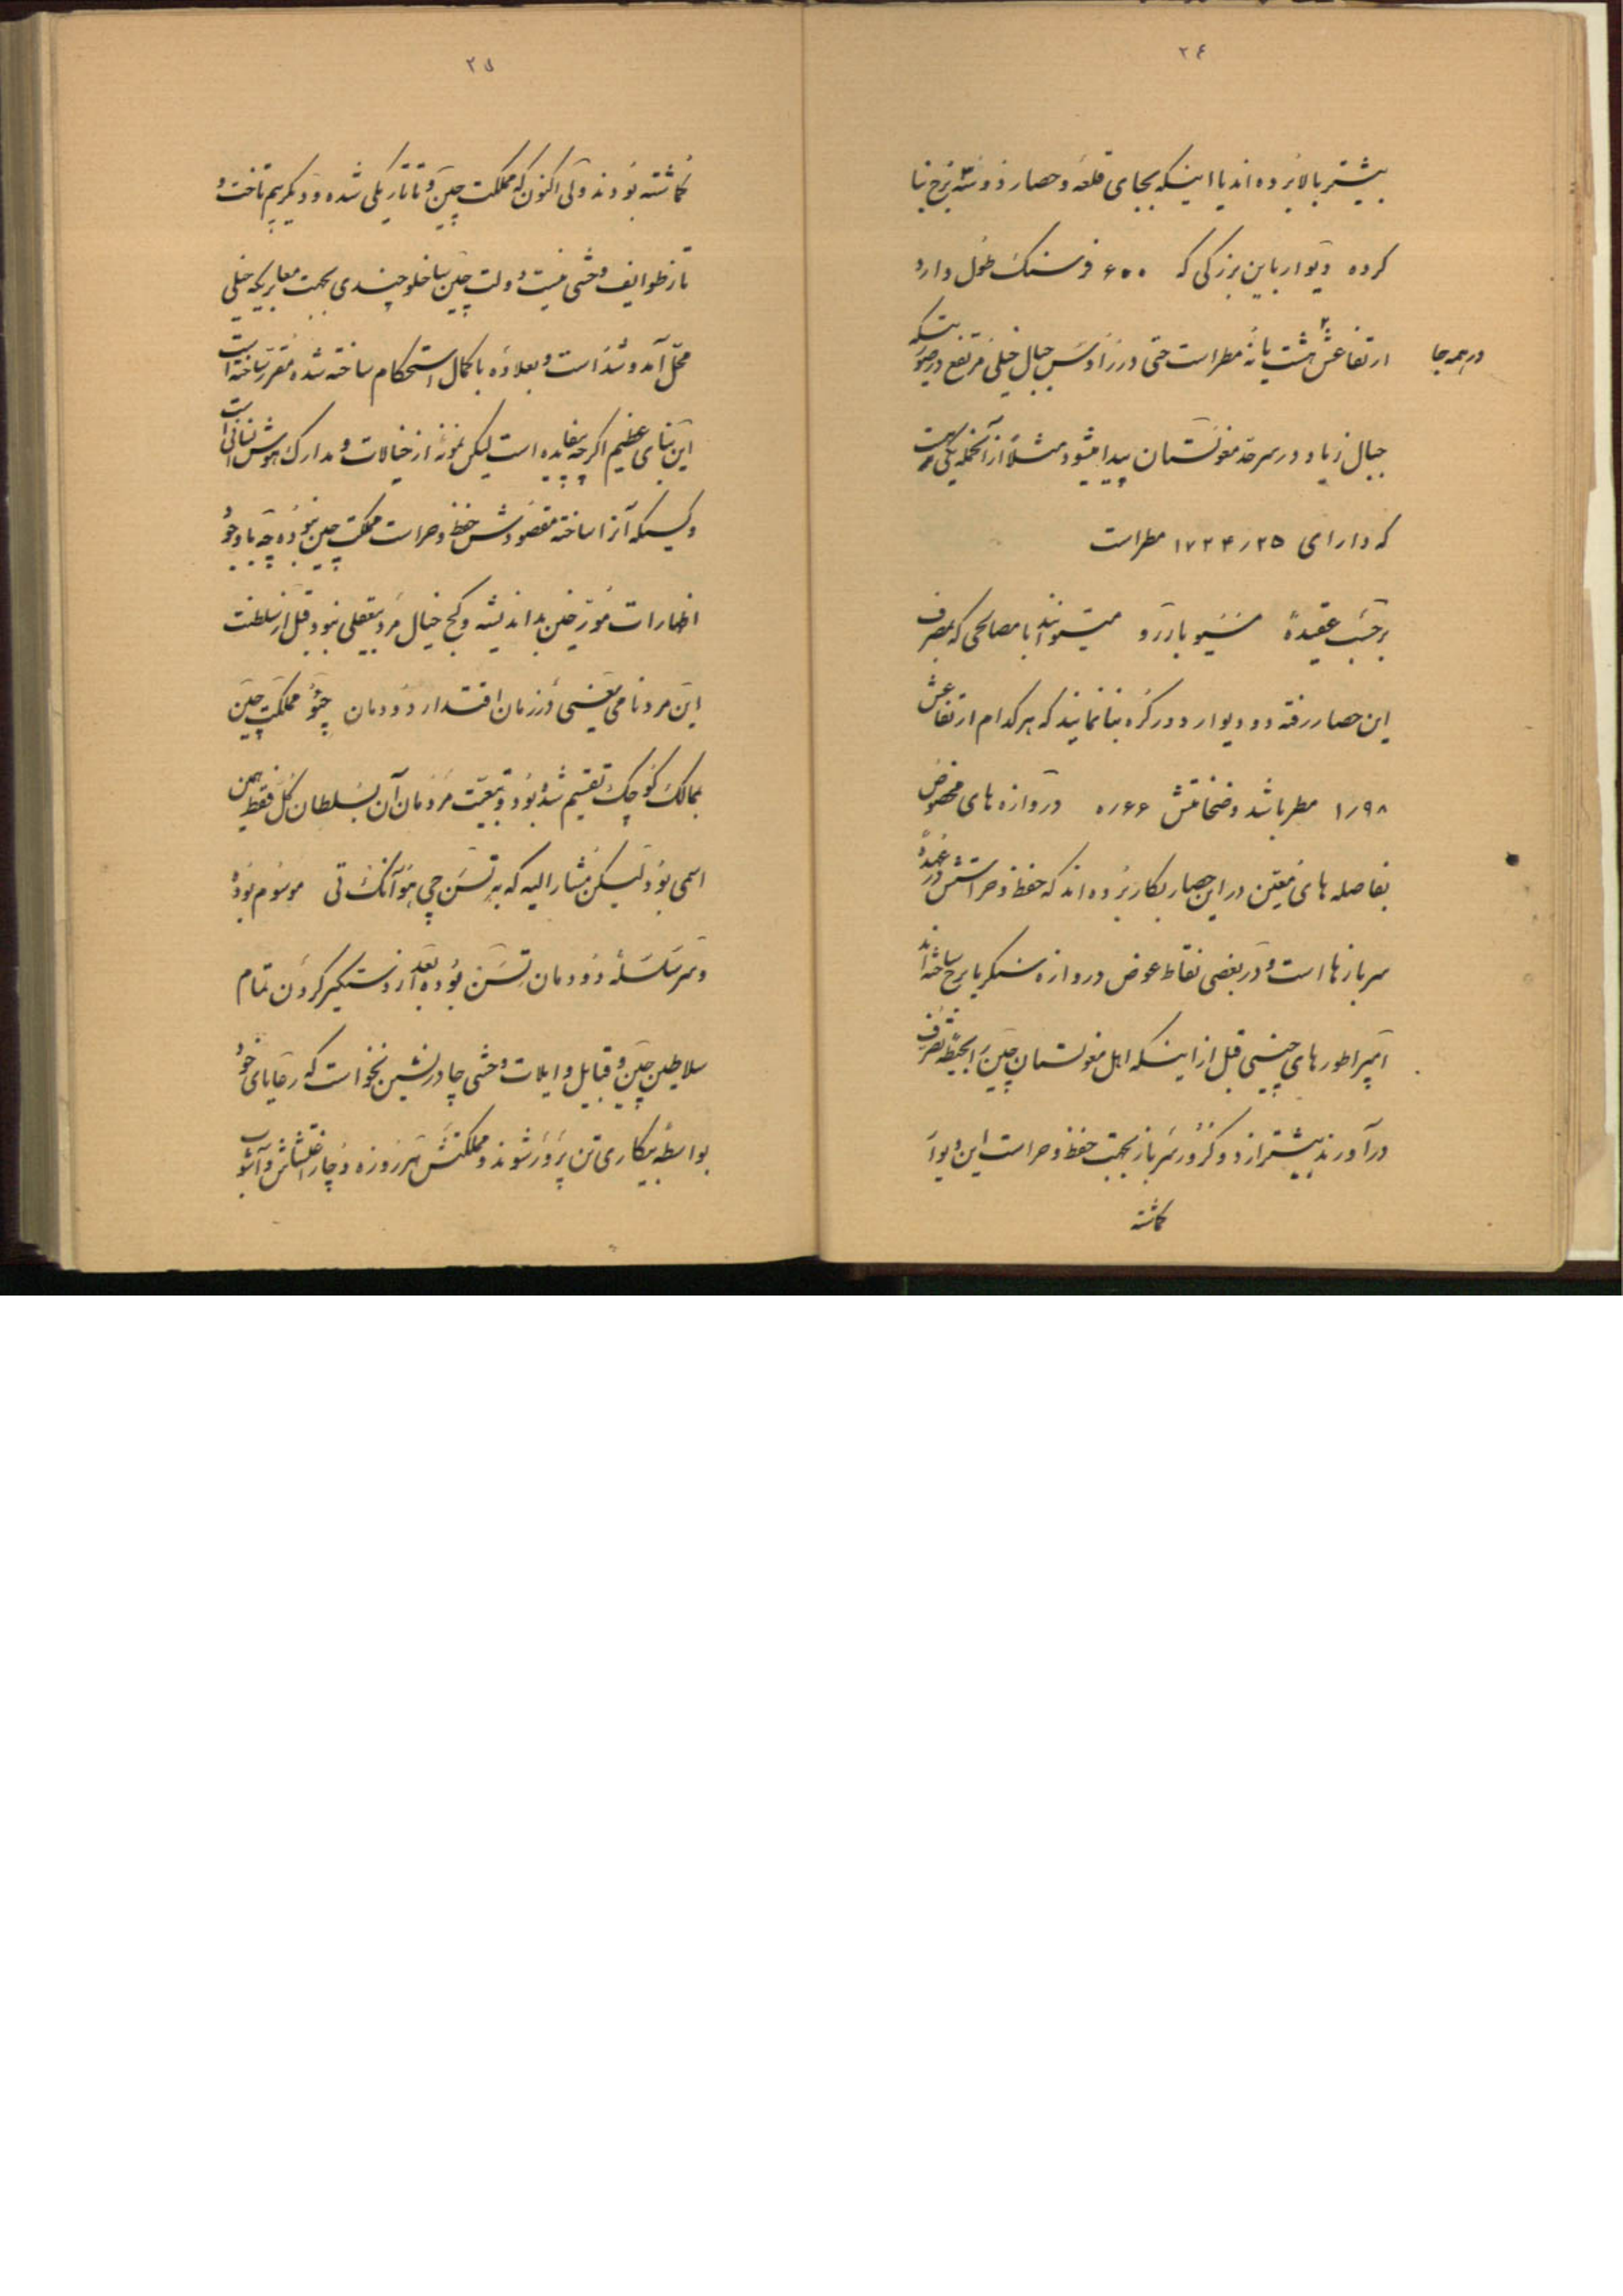 ۲٤
بیشتر بالا برده اند یا اینکه بجای قلعه و حصار دو سه برج بنا
کرده دیوار باین بزرگی که ۶۰۰ فرسنک طول دارد
در همه جا ارتفاعش هشت یا نه مطر است حتی در رأس جبال خیلی مرتفع در صورتیکه
جبال زیاد در سرحد مغولستان پیدا میشود مثلاً از آنجمله یکی است
که دارای ۱۷۲۴٫۲۵ مطر است
برحسب عقیدهٔ مسیو باررو میتوانند با مصالحی که بمصرف
این حصار رفته دو دیوار دور کره بنا نمایند که هر کدام ارتفاعش
۱٫۹۸ مطر باشد و ضخامتش ۰٫۶۶ دروازه های مخصوص
بفاصله های معین در این حصار بکار برده اند که حفظ و حراستش در عهدهٔ
سربازها است و در بعضی نقاط عوض دروازه سنکر یا برج ساخته اند
امپراطورهای چینی قبل از اینکه اهل مغولستان چین را بحیطه تصرف
درآورند بیشتر از دو کرور سرباز بجهت حفظ و حراست این دیوار
کماشته
۲۵
کماشته بودند ولی اکنون که مملکت چین و تاتار یکی شده و دیکر بیم تاخت و
تاز طوایف وحشی نیست دولت چین ساخلو چندی بجهت معابریکه خیلی
محل آمد و شد است و بعلاوه با کمال استحکام ساخته شده مقرر ساخته است
این بنای عظیم اکرچه بیفایده است لیکن نمونهٔ از خیالات و مدارک هوش انسانی است
و کسیکه آنرا ساخته مقصودش حفظ و حراست مملکت چین نبوده چه با وجود
اظهارات مورخین بداندیشه و کج خیال مرد بیعقلی نبود قبل از سلطنت
این مرد نامی یعنی در زمان اقتدار دودمان چو مملکت چین
بممالک کوچک تقسیم شده بود و تبعیت مردمان آن بسلطان کل فقط همین
اسمی بود لیکن مشار الیه که به تسن چی هوآنک تی موسوم بوده
و سرسلسلهٔ دودمان تسن بوده بعد از دستکیر کردن تمام
سلاطین چین و قبایل و ایلات وحشی چادرنشین نخواست که رعایای خود
بواسطه بیکاری تن پرور شوند و مملکتش هر روزه دچار اغتشاش و آشوب